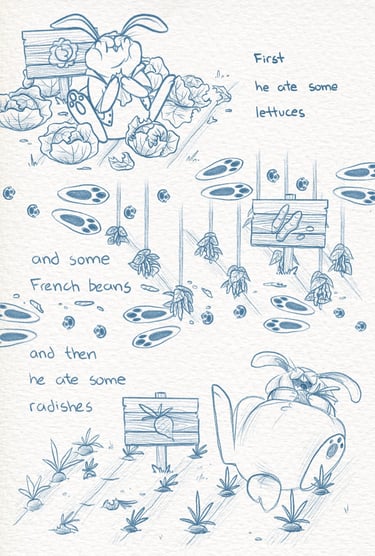 First
he ate some
lettuces
and some
French beans
and then
he ate some
radishes